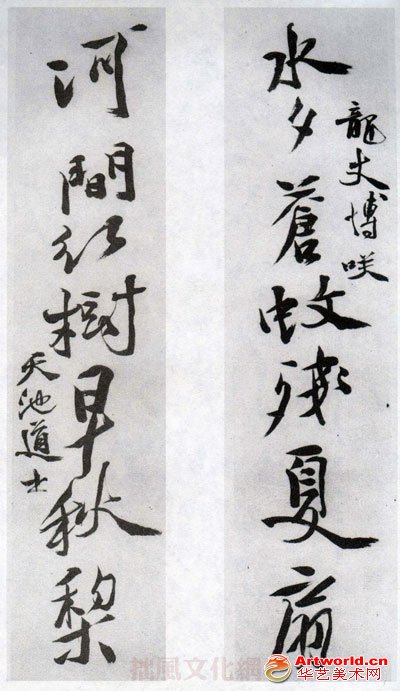 水夕蒼蚊殘夏扇
龍丈博咲
河間紅樹早秋梨
天池道士
風文化網
Artworld.cn
华艺美术网